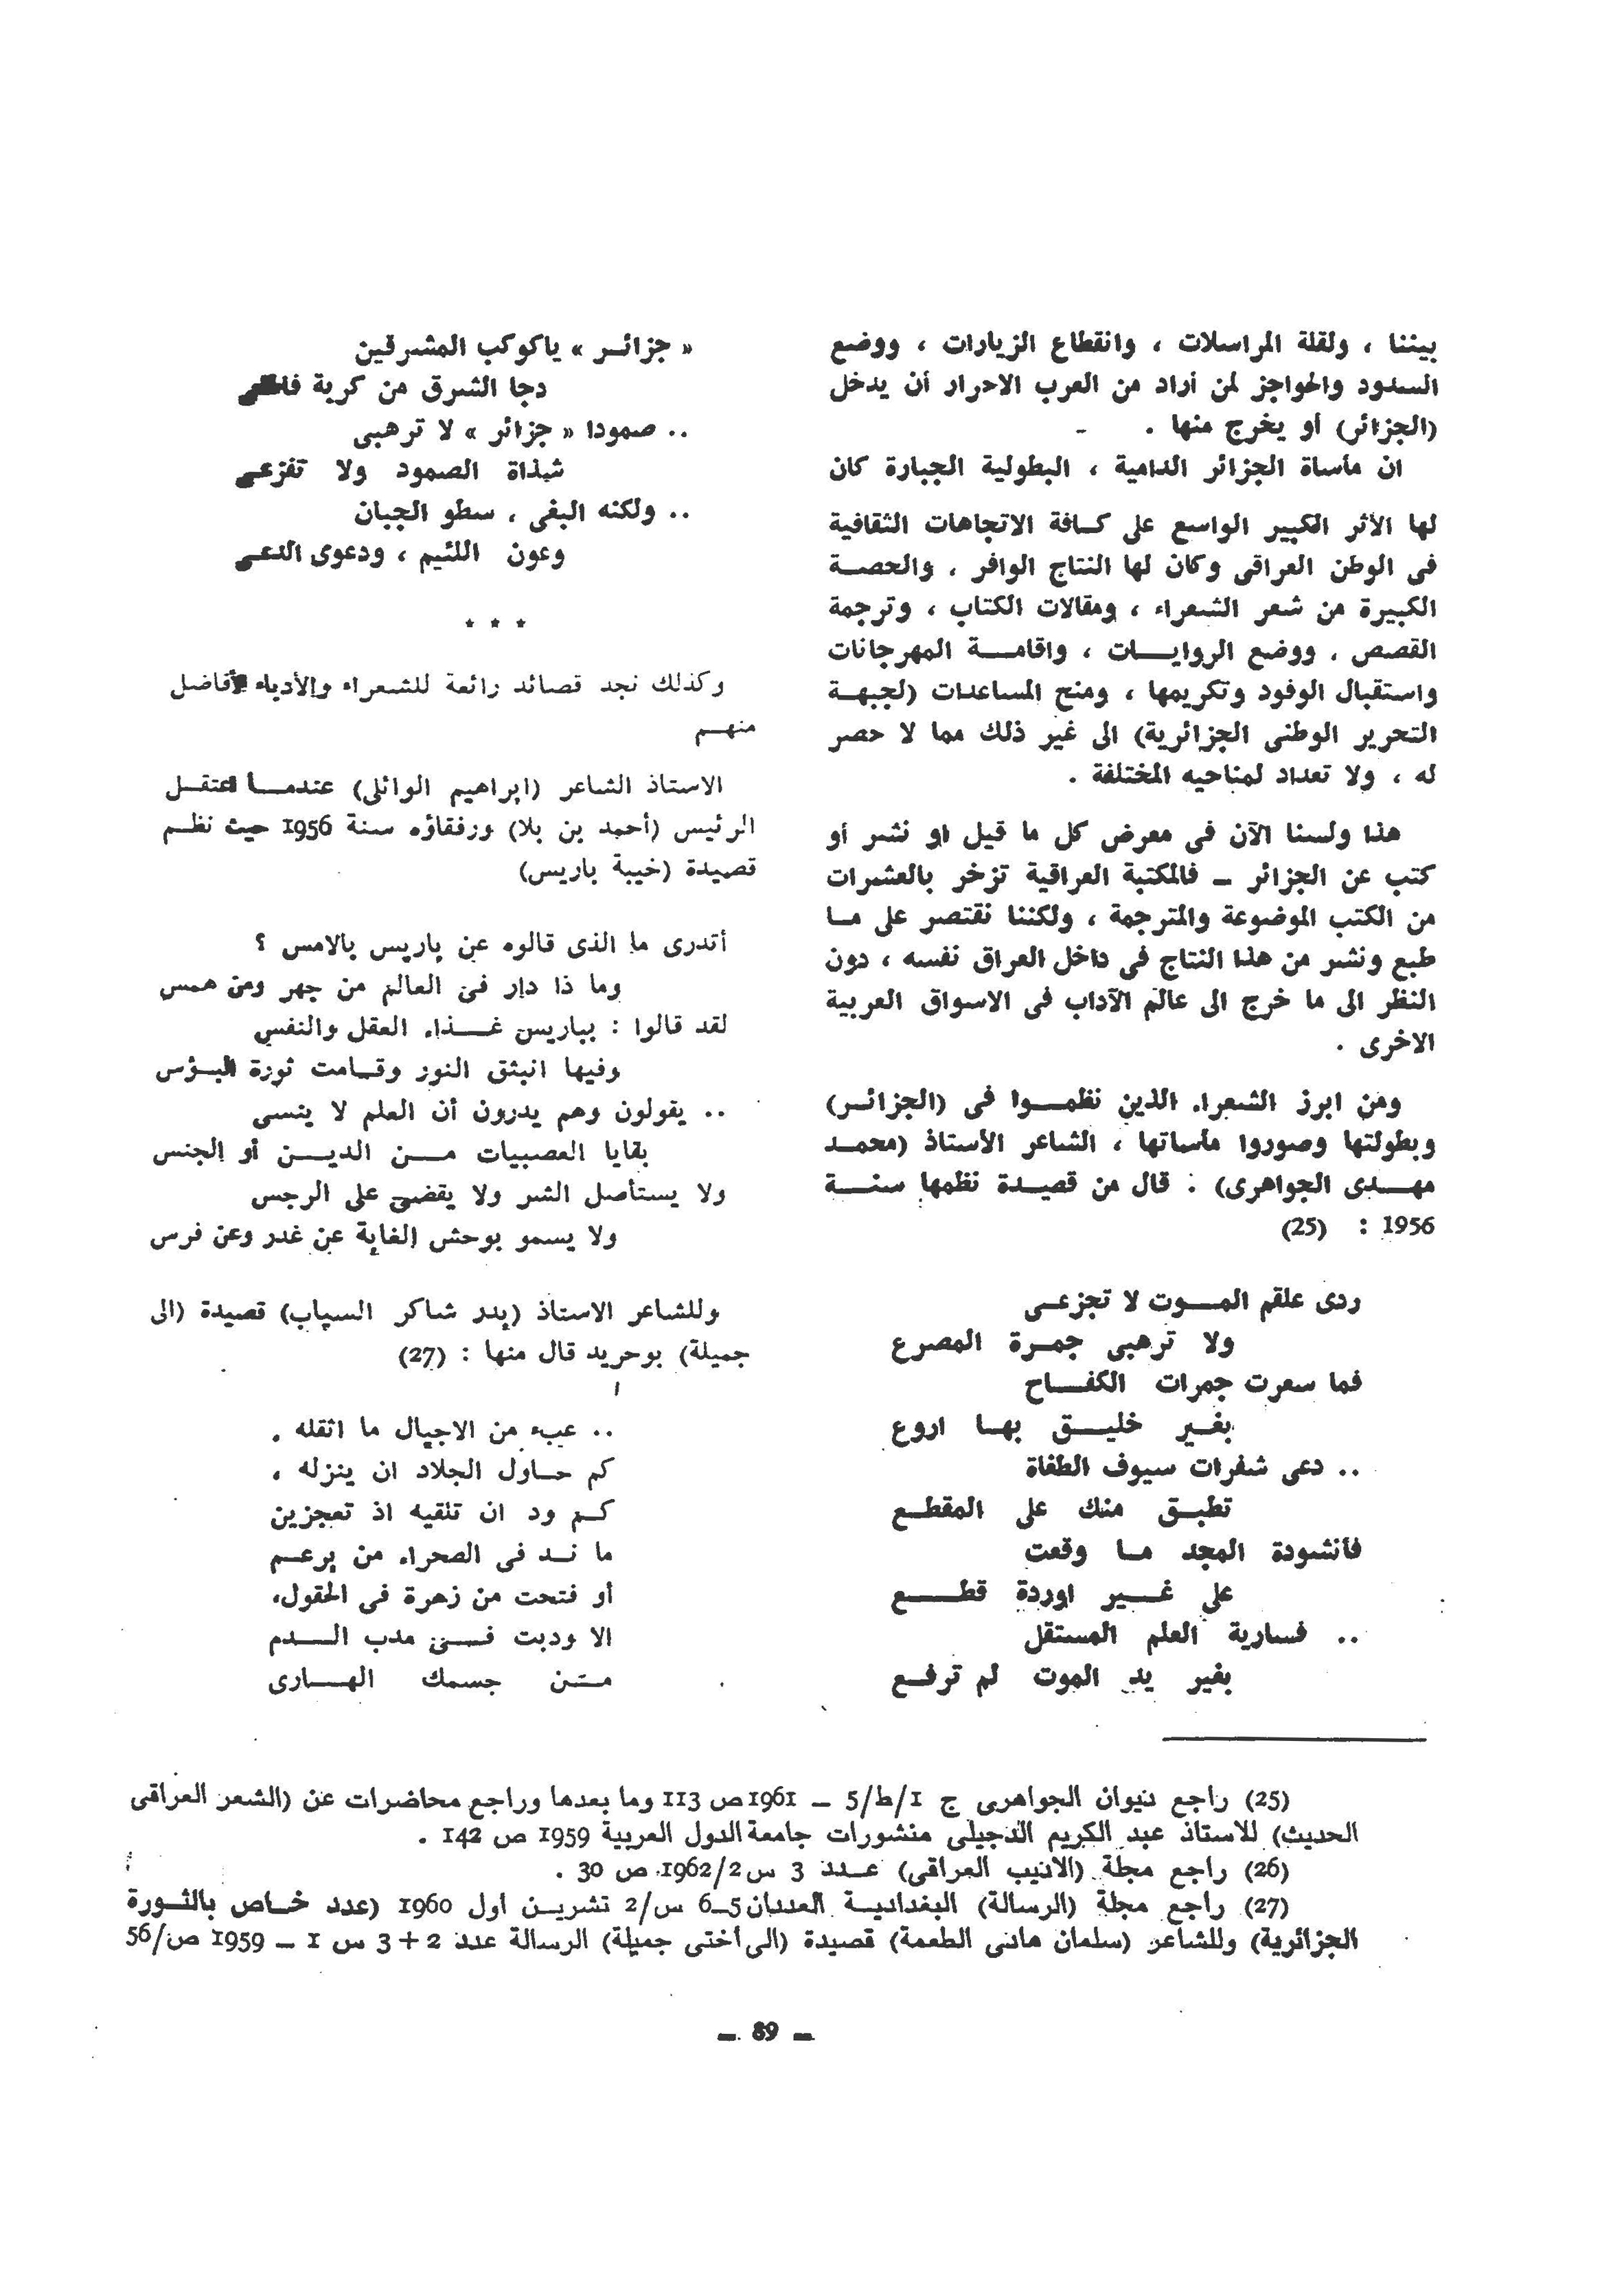 بيننا ، ولقلة المراسلات ، وانقطاع الزيارات ، ووضع
السدود والحواجز لمن أراد من العرب الاحرار أن يدخل
(الجزائر) أو يخرج منها .
ان مأساة الجزائر الدامية ، البطولية الجبارة كان
لها الأثر الكبير الواسع على كافة الاتجاهات الثقافية
فى الوطن العراقى وكان لها النتاج الوافر ، والحصة
الكبيرة من شعر الشعراء ، ومقالات الكتاب ، وترجمة
القصص ، ووضع الروايات ، واقامة المهرجانات
واستقبال الوفود وتكريمها ، ومنح المساعدات (لجبهة
التحرير الوطنى الجزائرية) الى غير ذلك مما لا حصر
له ، ولا تعداد لمناحيه المختلفة .
هذا ولسنا الآن فى معرض كل ما قيل او نشر أو
كتب عن الجزائر – فالمكتبة العراقية تزخر بالعشرات
من الكتب الموضوعة والمترجمة ، ولكننا نقتصر على ما
طبع ونشر من هذا النتاج فى داخل العراق نفسه ، دون
النظر الى ما خرج الى عالم الآداب فى الاسواق العربية
الاخرى .
ومن ابرز الشعراء الذين نظموا فى (الجزائر)
وبطولتها وصوروا مأساتها ، الشاعر الأستاذ (محمد
مهدى الجواهرى) : قال من قصيدة نظمها سنة
1956 : (25)
ردى علقم الموت لا تجزعى
ولا ترهبى جمرة المصرع
فما سعرت جمرات الكفاح
بغير خليق بها اروع
.. دعى شفرات سيوف الطغاة
تطبق منك على المقطع
فأنشودة المجد ما وقعت
على غير اوردة قطع
.. فسارية العلم المستقل
بغير يد الموت لم ترفع
« جزائر » ياكوكب المشرقين
دجا الشرق من كربة
.. صمودا « جزائر » لا ترهبى
شذاة الصمود ولا تفزعى
.. ولكنه البغى ، سطو الجبان
وعون اللئيم ، ودعوى الدعى
* * *
وكذلك نجد قصائد رائعة للشعراء والأدباء الأفاضل
منهم
الاستاذ الشاعر (ابراهيم الوائلى) عندما اعتقل
الرئيس (أحمد بن بلا) ورفقاؤه سنة 1956 حيث نظم
قصيدة (خيبة باريس)
أتدرى ما الذى قالوه عن باريس بالامس ؟
وما ذا دار فى العالم من جهر ومن همس
لقد قالوا : بباريس غذاء العقل والنفس
وفيها انبثق النور وقامت ثورة البؤس
.. يقولون وهم يدرون أن العلم لا ينسى
بقايا العصبيات من الدين أو الجنس
ولا يستأصل الشر ولا يقضى على الرجس
ولا يسمو بوحش الغابة عن غدر وعن فرس
وللشاعر الاستاذ (بدر شاكر السياب) قصيدة (الى
جميلة) بوحريد قال منها : (27)
.. عبء من الاجيال ما اثقله .
كم حاول الجلاد ان ينزله ،
كم ود ان تلقيه اذ تعجزين
ما ند فى الصحراء من برعم
أو فتحت من زهرة فى الحقول،
الا ودبت فى مدب الدم
من جسمك الهارى
(25) راجع ديوان الجواهرى ج 1/ط/5 – 1961 ص 113 وما بعدها وراجع محاضرات عن (الشعر العراقى
الحديث) للاستاذ عبد الكريم الدجيلى منشورات جامعة الدول العربية 1959 ص 142 .
(26) راجع مجلة (الاديب العراقى) عدد 3 س 1962/2 ص 30 .
(27) راجع مجلة (الرسالة) البغدادية العددان 5–6 س/2 تشرين اول 1960 (عدد خاص بالثورة
الجزائرية) وللشاعر (سلمان هادى الطعمة) قصيدة (الى أختى جميلة) الرسالة عدد 2 + 3 س 1 – 1959 ص/56
– 89 –